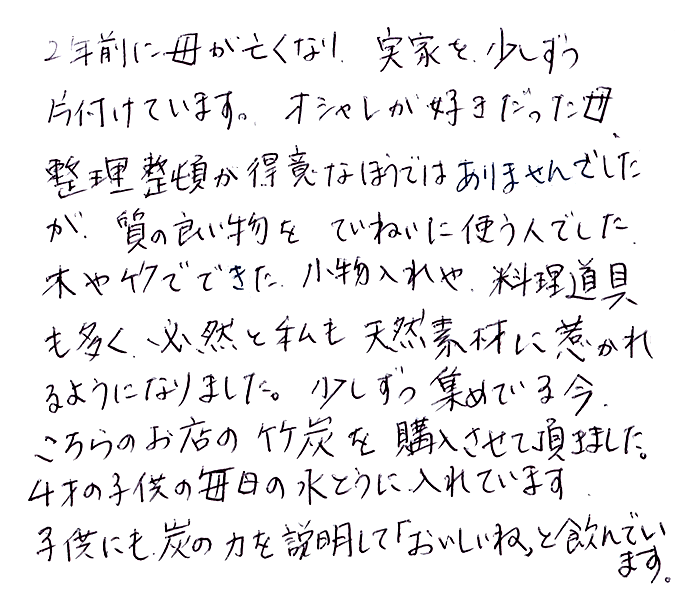 2年前に母が亡くなり、実家を少しずつ
片付けています。オシャレが好きだった母、
整理整頓が得意なほうではありませんでした
が、質の良い物をていねいに使う人でした。
木や竹でできた、小物入れや、料理道具
も多く、必然と私も天然素材に惹かれ
るようになりました。少しずつ集めている今、
こちらのお店の竹炭を購入させて頂きました。
4才の子供の毎日の水とうに入れています。
子供にも炭の力を説明して「おいしいね」と飲んでい
ます。